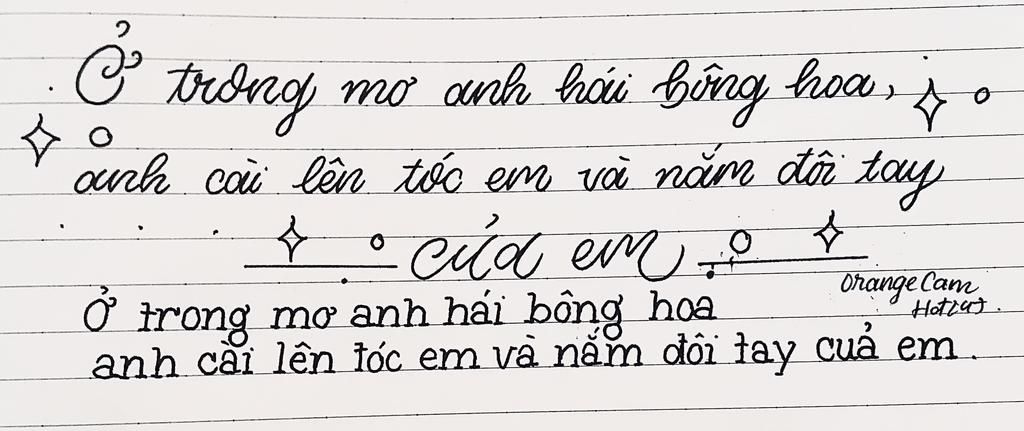 Ở trong mơ anh hái bông hoa,
anh cài lên tóc em và nắm đôi tay
của em
Orange Cam
Ở trong mơ anh hái bông hoa
anh cài lên tóc em và nắm đôi tay cuả em.